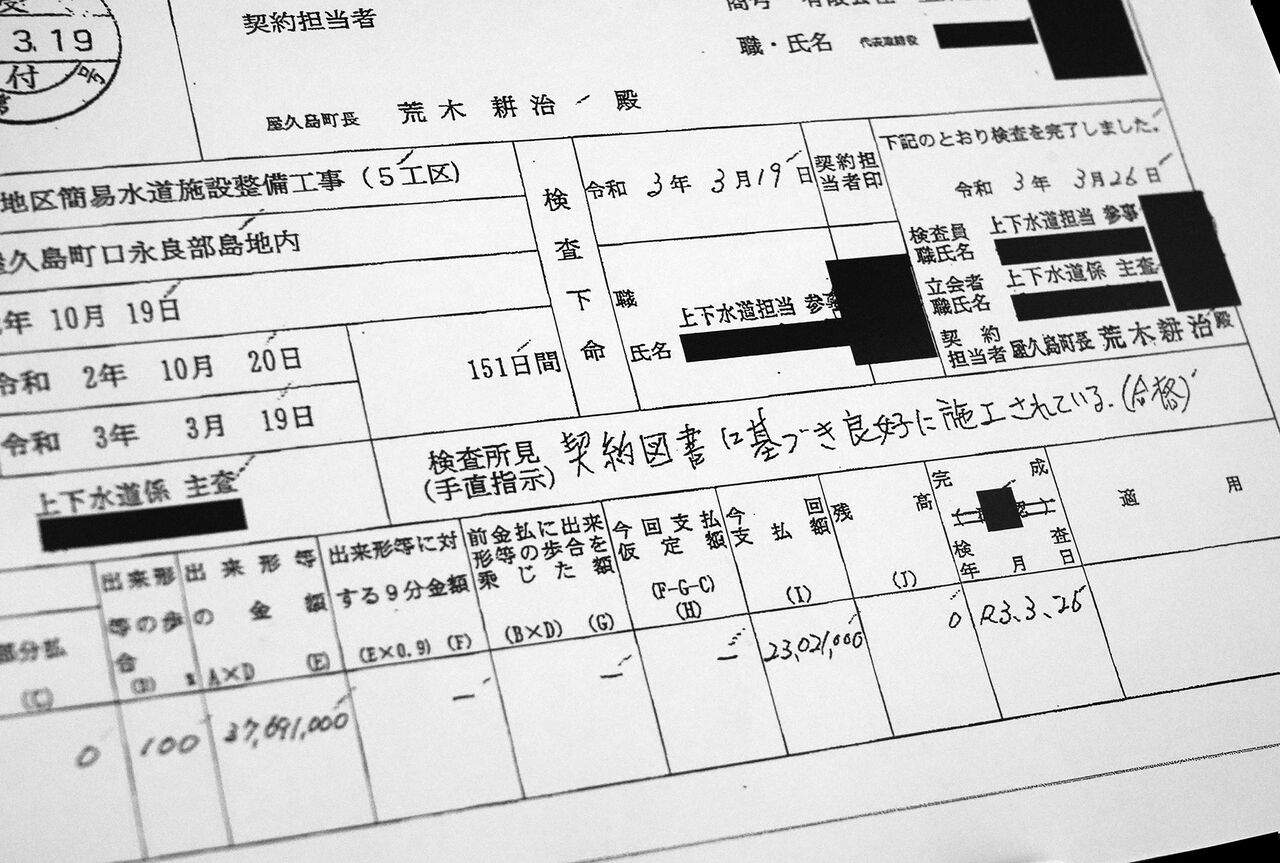 3.19
付
号
契約担当者
屋久島町長 荒木 耕治 殿
職・氏名 代表取締役
地区簡易水道施設整備工事(5工区)
屋久島町口永良部島地内
年 10月 19日
令和 2年 10月 20日
令和 3年 3月 19日
151日間
上下水道係 主査
検査下命
令和 3年 3月19日
契約担当者印
職 上下水道担当 参事
氏名
下記のとおり検査を完了しました。
令和 3年 3月26日
検査員職氏名 上下水道担当 参事
立会者職氏名 上下水道係 主査
契約担当者 屋久島町長 荒木耕治殿
検査所見(手直指示) 契約図書に基づき良好に施工されている.(合格)
部分払 (C)
出来形等の歩合 (D) %
出来形等の金額 A×D (E)
出来形等に対する9分金額 (E×0.9) (F)
前金払に出来形等の歩合を乗じた額 (B×D) (G)
今回支払仮定額 (F-G-C) (H)
今回支払額 (I)
残高 (J)
完成
検査年月日
適用
0 100 37,691,000 — — — 23,021,000 0 R3.3.26